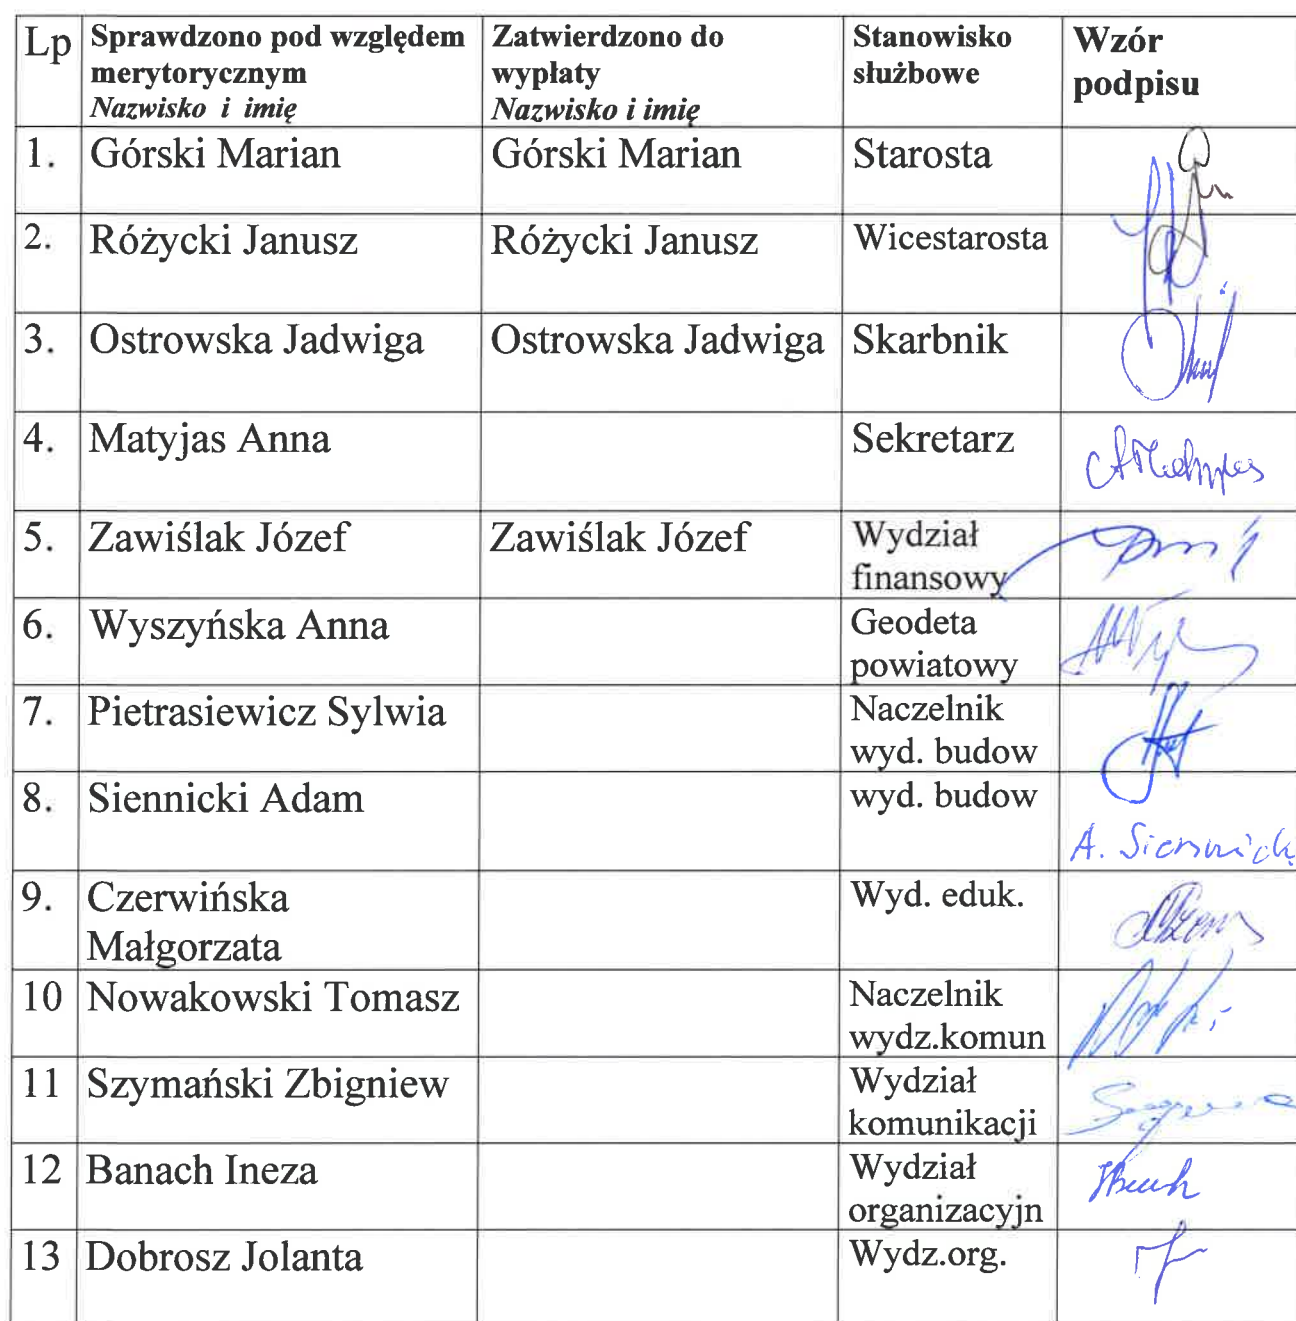 Lp Sprawdzono pod względem Zatwierdzono do Stanowisko Wzór
merytorycznym wypłaty służbowe podpisu
Nazwisko i imię Nazwisko i imię
1. Górski Marian Górski Marian Starosta
2. Różycki Janusz Różycki Janusz Wicestarosta
3. Ostrowska Jadwiga Ostrowska Jadwiga Skarbnik
4. Matyjas Anna Sekretarz
5. Zawiślak Józef Zawiślak Józef Wydział
finansowy
6. Wyszyńska Anna Geodeta
powiatowy
7. Pietrasiewicz Sylwia Naczelnik
wyd. budow
8. Siennicki Adam wyd. budow
A. Siennicki
9. Czerwińska Wyd. eduk.
Małgorzata
10 Nowakowski Tomasz Naczelnik
wydz.komun
11 Szymański Zbigniew Wydział
komunikacji
12 Banach Ineza Wydział
organizacyjn
13 Dobrosz Jolanta Wydz.org.